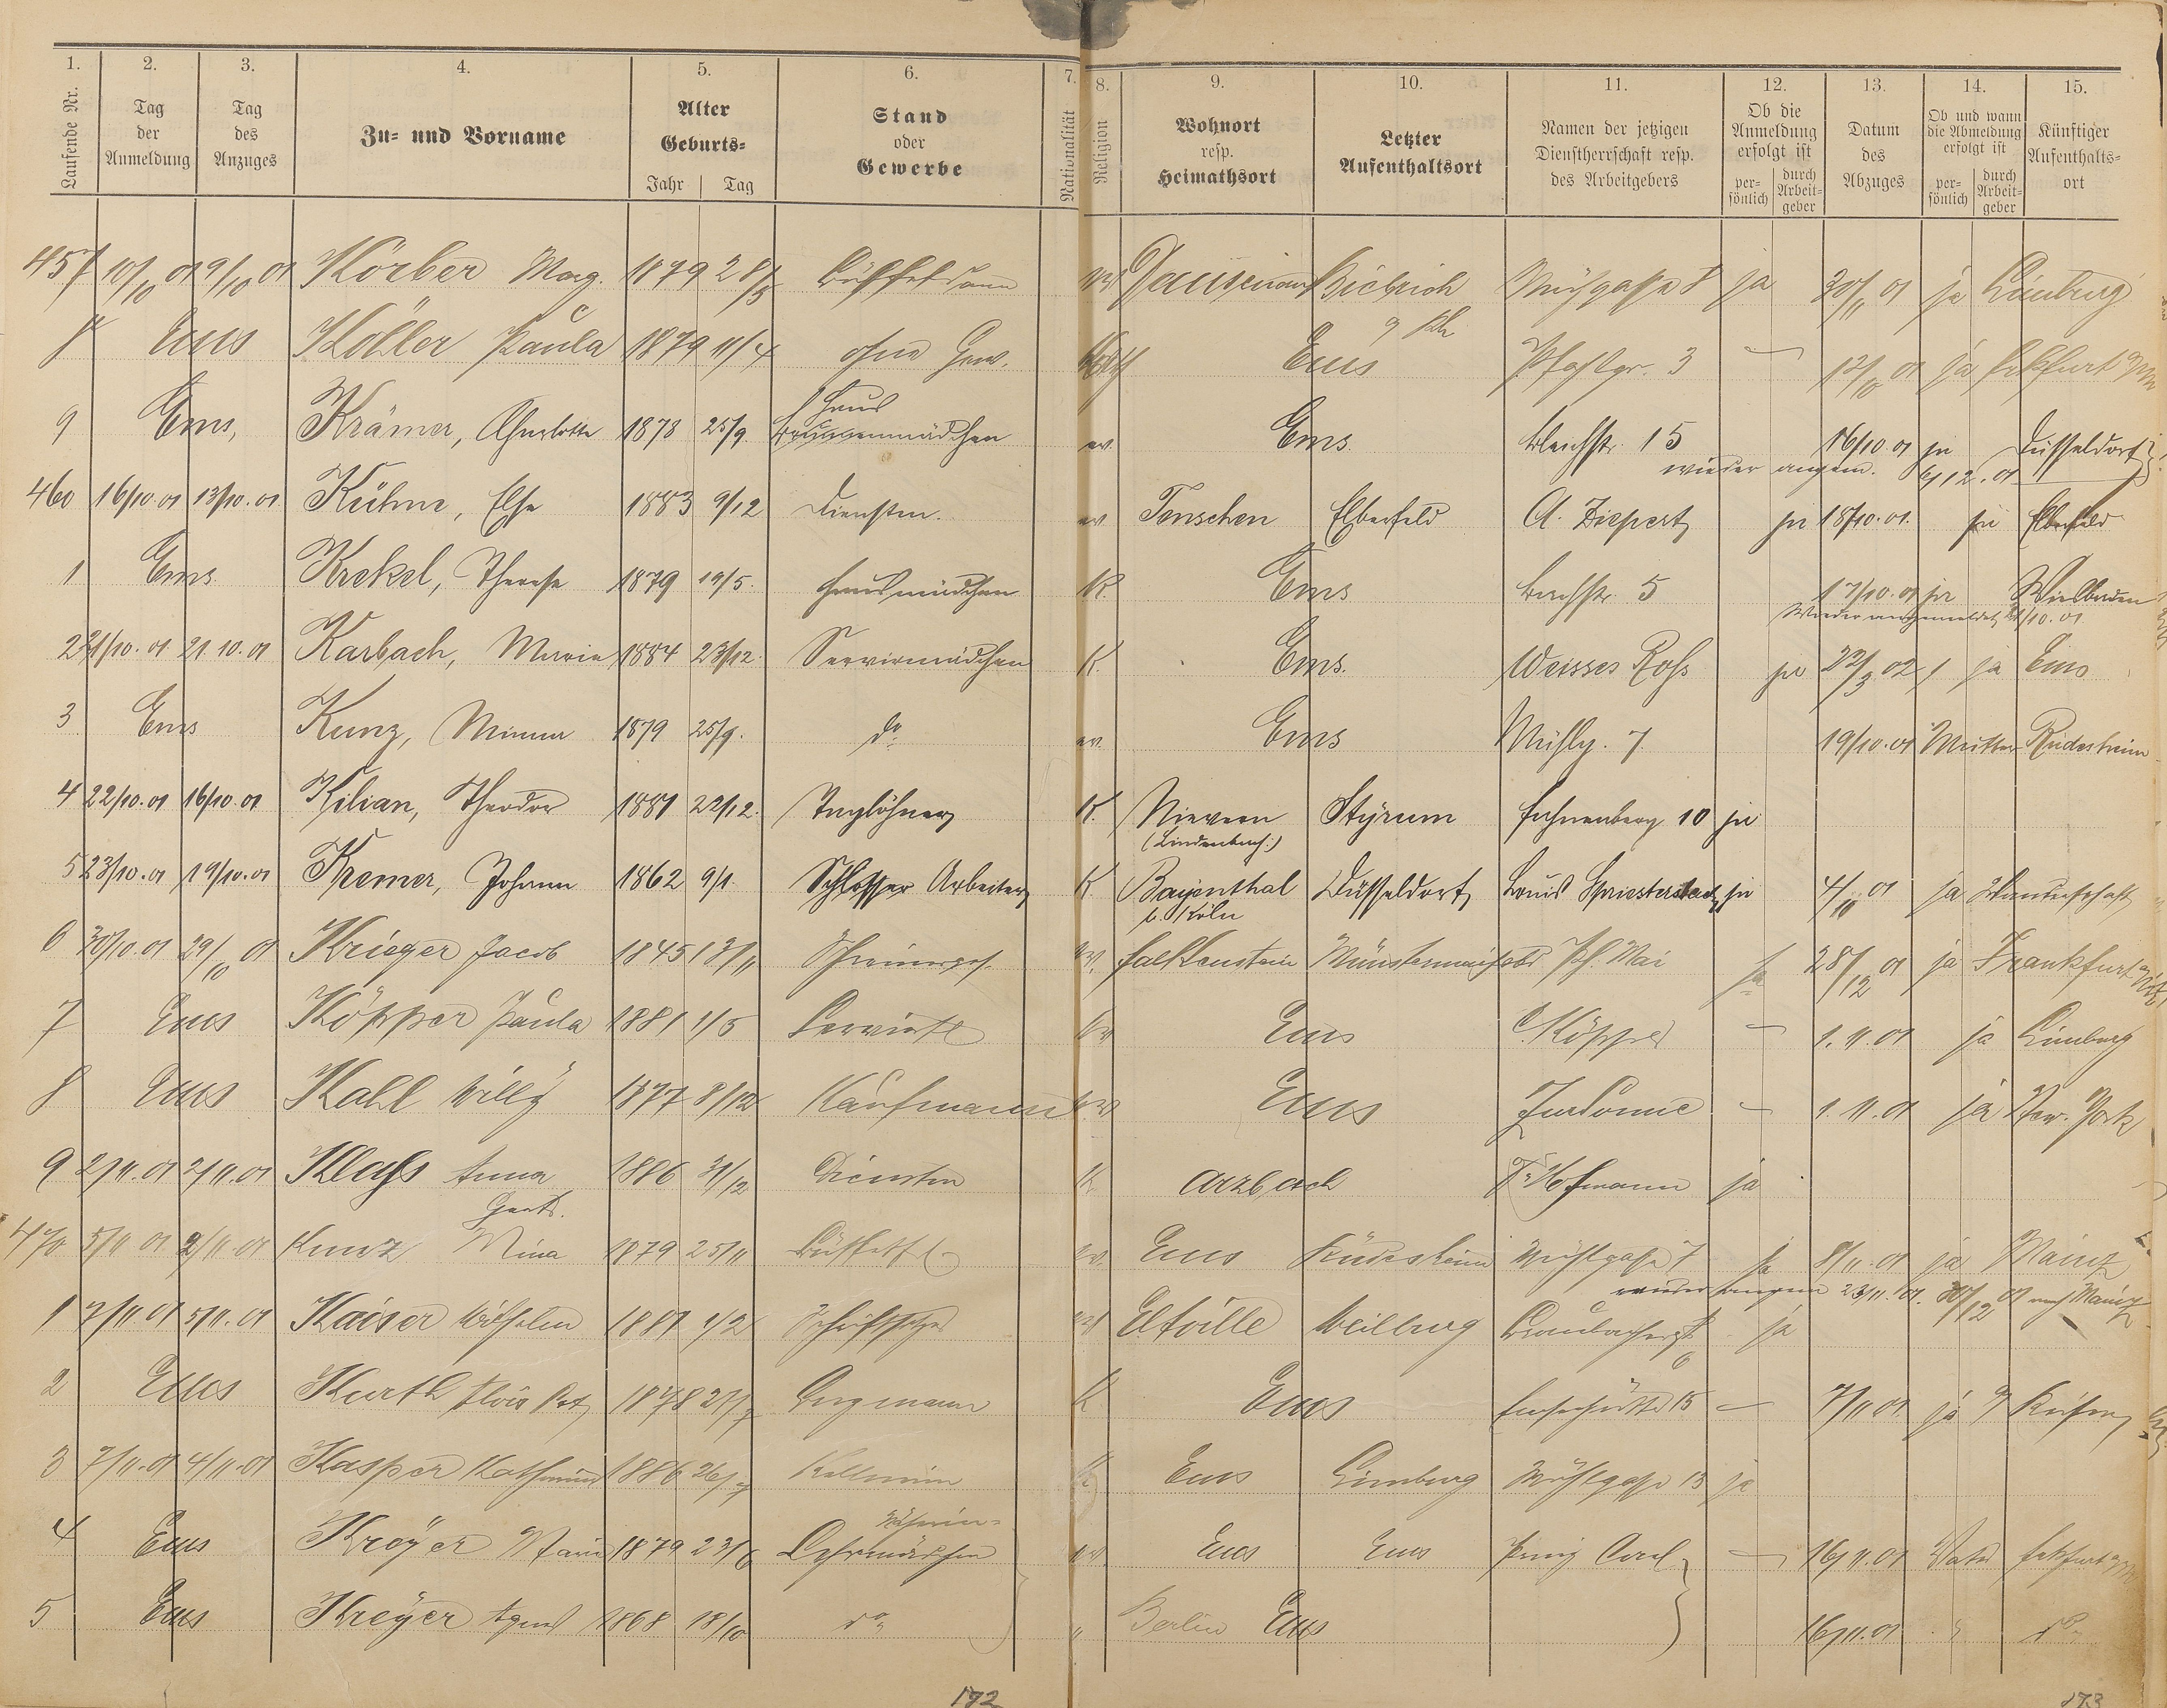 1. 2. 3. 4. 5. 6. 7. 8. 9. 10. 11. 12. 13. 14. 15.
Laufende Nr. | Tag der Anmeldung | Tag des Anzuges | Zu- und Vorname | Alter Geburts- Jahr | Tag | Stand oder Gewerbe | Nationalität | Religion | Wohnort resp. Heimathsort | Letzter Aufenthaltsort | Namen der jetzigen Dienstherrschaft resp. des Arbeitgebers | Ob die Anmeldung erfolgt ist persönlich | durch Arbeitgeber | Datum des Abzuges | Ob und wann die Abmeldung erfolgt ist persönlich | durch Arbeitgeber | Künftiger Aufenthaltsort
457 10/10 01 9/10 01 Körber Marg. 1879 28/5 ev Dausenau Biebrich Mühlgasse 8 ja 30/11 01 ja Limburg
a/Rh
8 Ems Köller Paula 1879 11/4 ohne Gew. Ems Pfahlgr. 3 – 12/10 01 ja Fkfurt a/M
Haus
9 Ems, Krämer, Charlotte 1878 25/9. Brunnenmädchen ev. Ems. Bleichstr. 15 16/10. 01 ja Düsseldorf
wieder angem. 6/12. 01
460 16/10. 01 13/10. 01 Kühne, Else 1883 9/12 Dienstm. ev Tenschen Elberfeld A. Ziepert ja 18/10. 01. ja Elberfeld
1 Ems. Krekel, Therese 1879 19/5. Hausmädchen K. Ems Bachstr. 5 17/10. 01 ja Wiesbaden
Wieder angemeldet /10. 01
2 21/10. 01 21 10. 01 Karbach, Maria 1884 23/12. Serviermädchen K. Ems. Weisses Ross ja 22/3 02 ja Ems
3 Ems Kunz, Minna 1879 25/9. do ev. Ems Mühlg. 7 19/10. 01 Mutter Rüdesheim
4 22/10. 01 16/10. 01 Kilian, Theodor 1881 22/12. Taglöhner K. Nievern Styrum Hahnenberg 10 ja
(Lindenbach.)
5 23/10. 01 19/10. 01 Kremer, Johann 1862 9/1. Schlosser Arbeiter K Bayenthal Düsseldorf Louis Spriestersbach ja 4/10 01 ja Wanderschaft
b. Köln
6 30/10. 01 29/10 01 Krieger Jacob 1845 13/11 Schreinerges. ev. Falkenstein Münstermaifeld Ph. Mai ja 28/12 01 ja Frankfurt a/M
7 Ems Köpper Paula 1881 1/5 Ems Köpper – 1. 11. 01 ja Limburg
8 Ems Kahl Willy 1877 8/12 Kaufmann ev Ems – 1. 11. 01 ja New-York
9 2/11. 01 2/11. 01 Klaß Anna 1886 31/12 Dienstm K. Arzbach Hofmann ja
Gert.
470 5/11 01 2/11. 01 Kunz Mina 1879 25/11 Büffetfl. ev. Ems Rüdesheim Mühlgasse 7 ja 8/11. 01 ja Mainz
wieder angem 23/11. 01. 30/12 01 nach Mainz
1 7/11 01 5/11. 01 Kaiser Wilhelm 1881 1/2 Schriftsetzer ev Eltville Weilburg Braubacherstr ja
6
2 Ems Kurth Alois 1878 27/7 Bergmann K Ems Emserhütte 15 – 7/11 01. ja a/ Reisen
3 7/11. 01 4/11. 01 Kasper Katharina 1886 26/7 Kellnerin K. Ems Limburg Mühlgasse 13 ja
Näherin-
4 Ems Kreÿer Maria 1879 23/6 Lehrmädchen ev Ems Ems Prinz Carl – 16/11. 01 Vater Fkfurt a/M
5 Ems Kreÿer Agnes 1868 18/10 do " Berlin Ems 16/11. 01 " do
192 193